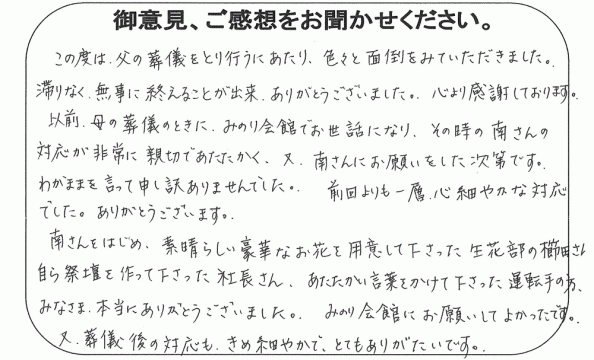 御意見、ご感想をお聞かせください。
この度は、父の葬儀をとり行うにあたり、色々と面倒をみていただきました。
滞りなく、無事に終えることが出来、ありがとうございました。心より感謝しております。
以前、母の葬儀のときに、みのり会館でお世話になり、その時の南さんの
対応が非常に親切であたたかく、又、南さんにお願いをした次第です。
わがままを言って申し訳ありませんでした。前回よりも一層、心細やかな対応
でした。ありがとうございます。
南さんをはじめ、素晴らしい豪華なお花を用意して下さった生花部の櫛田さん
自ら祭壇を作って下さった社長さん、あたたかい言葉をかけて下さった運転手の方、
みなさま、本当にありがとうございました。みのり会館にお願いしてよかったです。
又、葬儀後の対応も、きめ細やかで、とてもありがたいです。